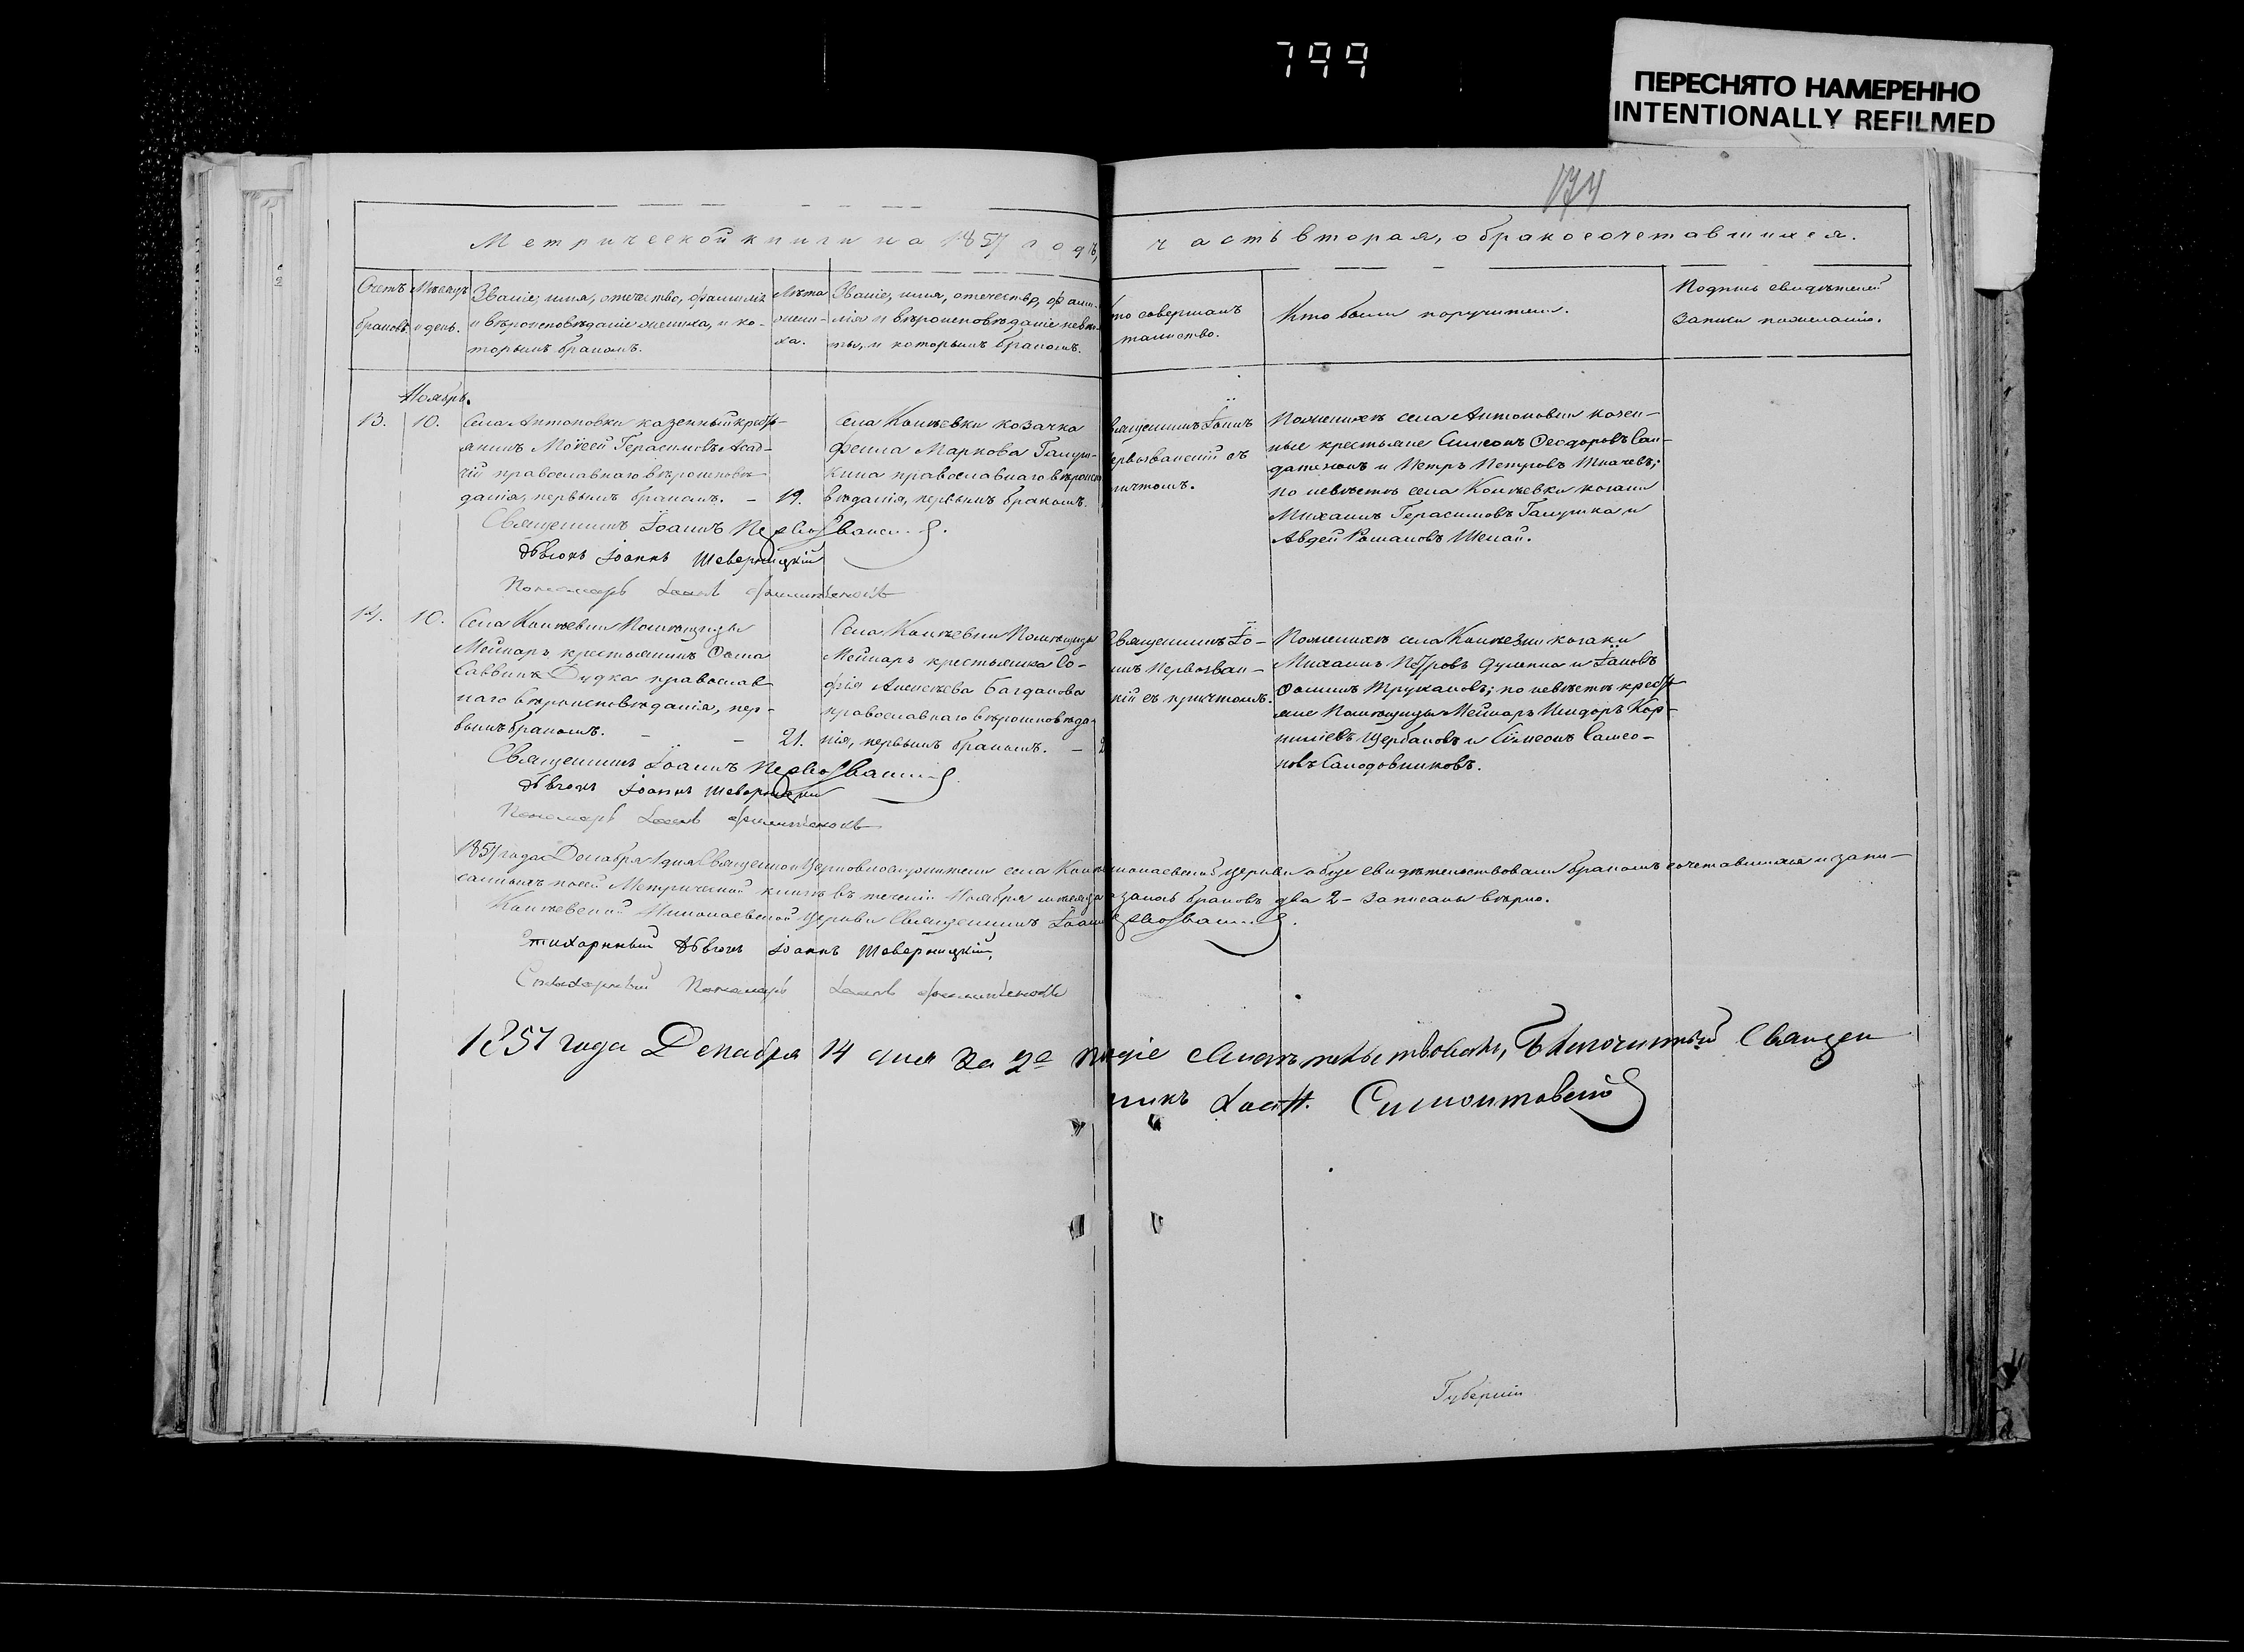 799
ПЕРЕСНЯТО НАМЕРЕННО
INTENTIONALLY REFILMED
174
Метрической книги на 1857 годъ,
часть вторая, о бракосочетавшихся.
Счетъ браковъ
Мѣсяцъ и день.
Званіе, имя, отечество, фамилія
и вѣроисповѣданіе жениха, и ко-
торымъ бракомъ.
Лѣта
жени-
ха.
Званіе, имя, отечество, фами-
лія и вѣроисповѣданіе невѣс-
ты, и которымъ бракомъ.
то совершалъ
таинство.
Кто были поручители.
Подпись свидѣтелей
записи по желанію.
Ноябрь.
13.
10.
Села Антоновки казенный кресть-
янинъ Моѵсей Герасимовъ
чій православнаго вѣроисповѣ-
данія, первымъ бракомъ. -
19.
Села козачка
Маркова Галуш-
кина православнаго вѣроиспо
вѣданія, первымъ бракомъ.
вященникъ Іоаннъ
ервозванскій съ
ричтомъ.
По женихѣ села Антоновки казен-
ные крестьяне Симеонъ Ѳеодоровъ Сол-
и Петръ Петровъ Ткачевъ;
по невѣстѣ села козаки
Михаилъ Герасимовъ Галушка и
Авдей Романовъ
Священникъ Іоаннъ Первозванскій.
Дьячокъ Іоаннъ Шеверницкій
Пономарь
14.
10.
Села Помѣщицы
Мейнаръ крестьянинъ Ѳома
Саввинъ Дудка православ
наго вѣроисповѣданія, пер-
вымъ бракомъ. - -
21.
Села Помѣщицы
Мейнаръ крестьянка Со-
фія Алексѣева Багданова
православнаго вѣроисповѣда-
нія, первымъ бракомъ. -
2
Священникъ Іо-
ннъ Первозван-
кій съ причтомъ.
По женихѣ села козаки
Михаилъ Петровъ и
Ѳоминъ Трукановъ; по невѣстѣ кресть
яне Помѣщицы Мейнаръ Исидоръ Кор-
ниліевъ Щербаковъ и Симеонъ Самсо-
новъ Саподовниковъ.
Священникъ Іоаннъ Первозванскій
Дьячокъ Іоаннъ Шеверницкій
Пономарь
1857 года Декабря 1 дня Священно и Церковнослужители села Николаевской церкви обще свидѣтельствовали бракомъ сочетавшихся и запи-
санныхъ по сей Метрической книгѣ въ теченіи Ноября мѣсяца браковъ два 2 - записаны вѣрно.
Николаевской Церкви Священникъ Іоаннъ Первозванскій.
Стихарный Дьячокъ Іоаннъ Шеверницкій,
Стихарный Пономарь
1857 года Декабря 14 дня За 2е свидѣтельствовалъ, Благочинный Священ
никъ Симонтовскій
Губерніи